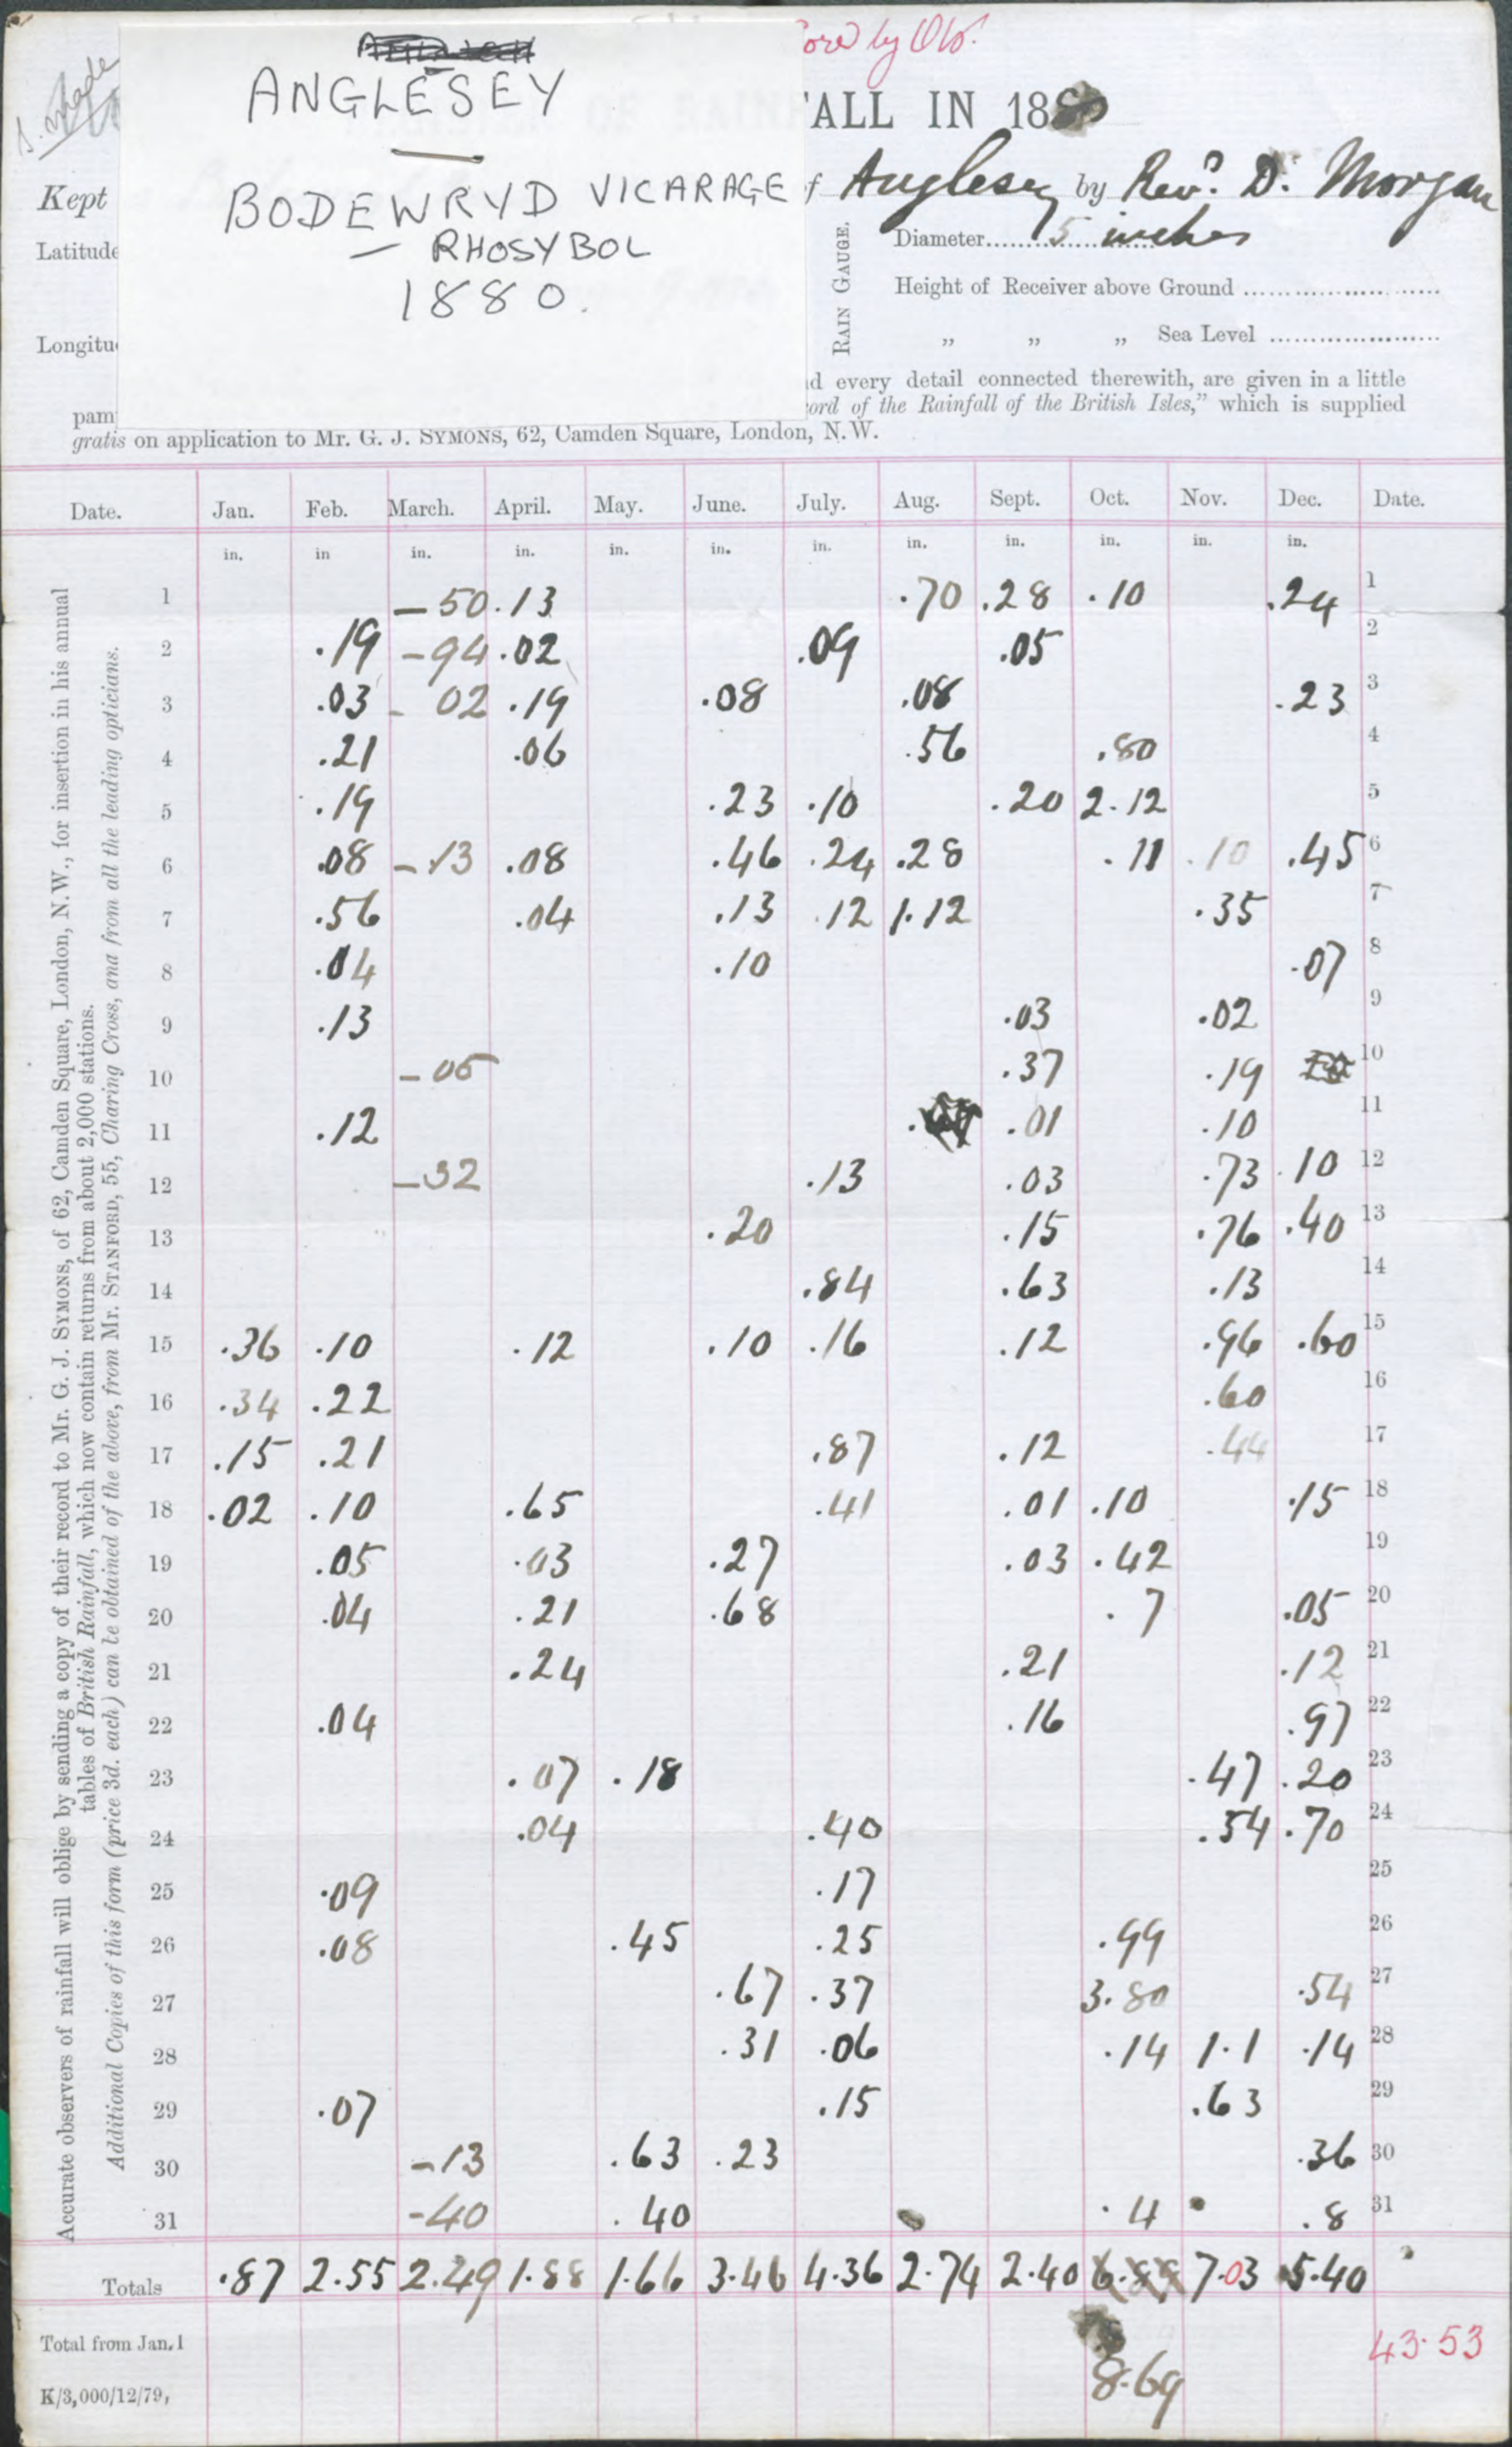 ANGLESEY
BODEWRYD VICARAGE
— RHOSYBOL
1880.
ored by Ob.
ALL IN 1880
Kept
f Anglesey by Revd. D. Morgan
Latitude
Longitu
RAIN GAUGE.
Diameter 5 inches
Height of Receiver above Ground
„ „ „ Sea Level
d every detail connected therewith, are given in a little
pam ord of the Rainfall of the British Isles," which is supplied
gratis on application to Mr. G. J. SYMONS, 62, Camden Square, London, N.W.
Accurate observers of rainfall will oblige by sending a copy of their record to Mr. G. J. SYMONS, of 62, Camden Square, London, N.W., for insertion in his annual
tables of British Rainfall, which now contain returns from about 2,000 stations.
Additional Copies of this form (price 3d. each) can be obtained of the above, from Mr. STANFORD, 55, Charing Cross, and from all the leading opticians.
Date. Jan. Feb. March. April. May. June. July. Aug. Sept. Oct. Nov. Dec. Date.
in. in in. in. in. in. in. in. in. in. in. in.
1 –50 .13 .70 .28 .10 .24 1
2 .19 –94 .02 .09 .05 2
3 .03 – 02 .19 .08 .08 .23 3
4 .21 .06 .56 .80 4
5 .19 .23 .10 .20 2.12 5
6 .08 –.13 .08 .46 .24 .28 .11 .10 .45 6
7 .56 .04 .13 .12 1.12 .35 7
8 .04 .10 .07 8
9 .13 .03 .02 9
10 –05 .37 .19 10
11 .12 .01 .10 11
12 –32 .13 .03 .73 .10 12
13 .20 .15 .76 .40 13
14 .84 .63 .13 14
15 .36 .10 .12 .10 .16 .12 .96 .60 15
16 .34 .22 .60 16
17 .15 .21 .87 .12 .44 17
18 .02 .10 .65 .41 .01 .10 .15 18
19 .05 .03 .27 .03 .42 19
20 .04 .21 .68 .7 .05 20
21 .24 .21 .12 21
22 .04 .16 .97 22
23 .07 .18 .47 .20 23
24 .04 .40 .54 .70 24
25 .09 .17 25
26 .08 .45 .25 .99 26
27 .67 .37 3.80 .54 27
28 .31 .06 .14 1.1 .14 28
29 .07 .15 .63 29
30 –13 .63 .23 .36 30
31 –40 .40 .4 .8 31
Totals .87 2.55 2.49 1.88 1.66 3.46 4.36 2.74 2.40 6.89 7.03 5.40
Total from Jan. 1 43.53
8.69
K/3,000/12/79,